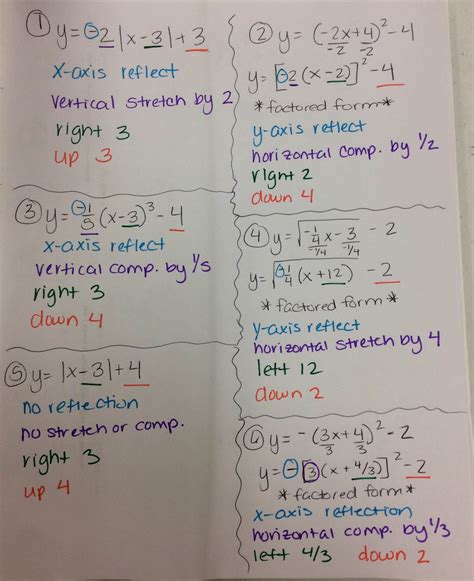 ① y = -2|x-3|+3
x-axis reflect
vertical stretch by 2
right 3
up 3
② y = (-2x+4)²-4
-2 -2
y = [-2(x-2)]²-4
*factored form*
y-axis reflect
horizontal comp. by 1/2
right 2
down 4
③ y = -1/5 (x-3)³-4
x-axis reflect
vertical comp. by 1/5
right 3
down 4
④ y = √(-1/4 x - 3) - 2
-1/4 -1/4
y = √(-1/4 (x+12)) - 2
*factored form*
y-axis reflect
horizontal stretch by 4
left 12
down 2
⑤ y = |x-3|+4
no reflection
no stretch or comp.
right 3
up 4
⑥ y = -(3x+4)²-2
3 3
y = -[3(x+4/3)]²-2
*factored form*
x-axis reflection
horizontal comp. by 1/3
left 4/3 down 2